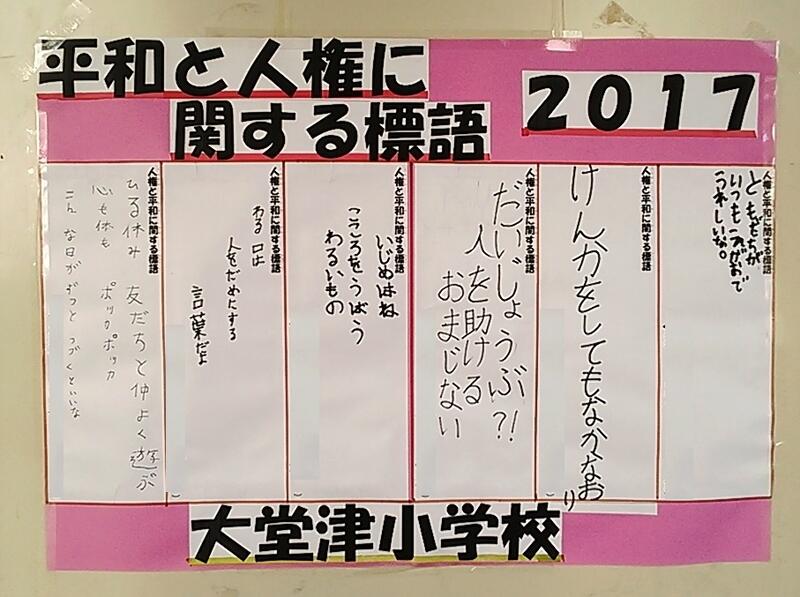 平和と人権に
関する標語
2017
人権と平和に関する標語
ともだちが
いつもえがおで
うれしいな。
人権と平和に関する標語
けんかをしてもなかなお
り
人権と平和に関する標語
だいじょうぶ?!
人を助ける
おまじない
人権と平和に関する標語
いじめはね
こころをうばう
わるいもの
人権と平和に関する標語
わる口は
人をだめにする
言葉だよ
人権と平和に関する標語
ひる休み 友だちと仲よく遊ぶ
心も体も ポッカポッカ
こんな日がずっとつづくといいな
大堂津小学校